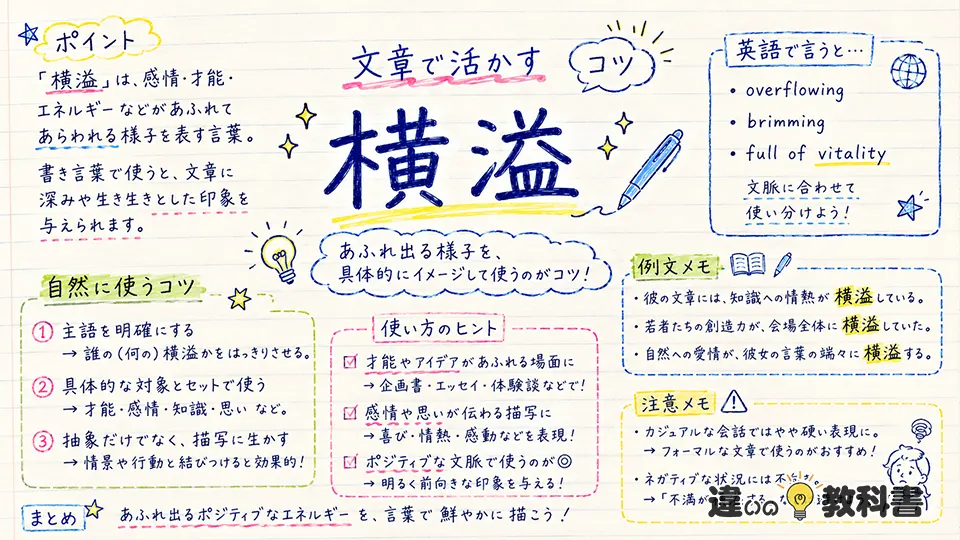 ポイント
「横溢」は、感情・才能・
エネルギーなどがあふれて
あらわれる様子を表す言葉。
書き言葉で使うと、文章に
深みや生き生きとした印象を
与えられます。
文章で活かす
コツ
横溢
あふれ出る様子を、
具体的にイメージして使うのがコツ!
英語で言うと…
• overflowing
• brimming
• full of vitality
文脈に合わせて
使い分けよう!
自然に使うコツ
① 主語を明確にする
→ 誰の(何の)横溢かをはっきりさせる。
② 具体的な対象とセットで使う
→ 才能・感情・知識・思い など。
③ 抽象だけでなく、描写に生かす
→ 情景や行動と結びつけると効果的!
使い方のヒント
☑ 才能やアイデアがあふれる場面に
→ 企画書・エッセイ・体験談などで!
☑ 感情や思いが伝わる描写に
→ 喜び・情熱・感動などを表現!
☑ ポジティブな文脈で使うのが◎
→ 明るく前向きな印象を与える!
例文メモ
・彼の文章には、知識への情熱が横溢している。
・若者たちの創造力が、会場全体に横溢していた。
・自然への愛情が、彼女の言葉の端々に横溢する。
注意メモ
・カジュアルな会話ではやや硬い表現に。
→ フォーマルな文章で使うのがおすすめ!
・ネガティブな状況には不
→「不満が
まとめ
あふれ出るポジティブなエネルギーを、言葉で鮮やかに描こう!
違いの教科書